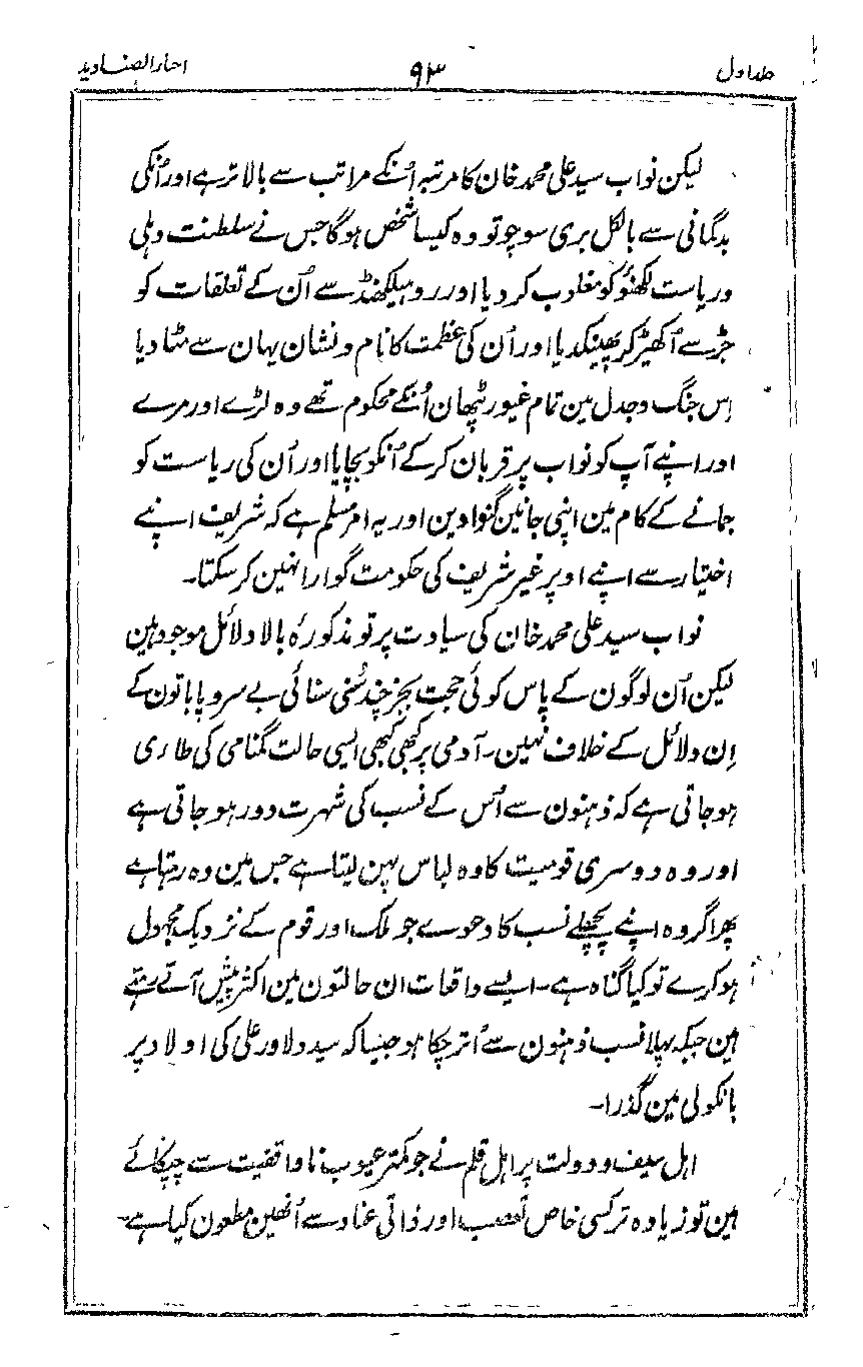 جلد اول ۹۳ اخبار الصنادید
لیکن نواب سید علی محمد خان کا مرتبہ اُنکے مراتب سے بالاتر ہے اور اُنکی
بدگمانی سے بالکل بری سوچو تو وہ کیسا شخص ہوگا جس نے سلطنت دہلی
وریاست لکھنؤ کو مغلوب کردیا اور روہیلکھنڈ سے اُن کے تعلقات کو
جڑ سے اُکھیڑ کر پھینکدیا اور اُن کی عظمت کا نام و نشان یہان سے مٹا دیا
اِس جنگ و جدل مین تمام غیور پٹھان اُنکے محکوم تھے وہ لڑے اور مرے
اور اپنے آپ کو نواب پر قربان کرکے اُنکو بچایا اور اُن کی ریاست کو
جمانے کے کام مین اپنی جانین گنوا دین اور یہ امر مسلم ہے کہ شریف اپنے
اختیار سے اپنے اوپر غیر شریف کی حکومت گوارا نہین کرسکتا۔
نواب سید علی محمد خان کی سیادت پر تو مذکورہ بالا دلائل موجود ہین
لیکن اُن لوگون کے پاس کوئی حجت بجز چند سُنی سنائی بے سروپا باتون کے
اِن دلائل کے خلاف نہین۔ آدمی پر کبھی کبھی ایسی حالت گمنامی کی طاری
ہوجاتی ہے کہ ذہنون سے اُس کے نسب کی شہرت دور ہوجاتی ہے
اور وہ دوسری قومیت کا وہ لباس پہن لیتا ہے جس مین وہ رہتا ہے
پھر اگر وہ اپنے پچھلے نسب کا دعوے جو ملک اور قوم کے نزدیک مجہول
ہو کرے تو کیا گناہ ہے۔ ایسے واقعات ان حالتون مین اکثر پیش آتے رہتے
ہین جبکہ پہلا نسب ذہنون سے اُتر چکا ہو جیسا کہ سید دلاور علی کی اولاد پر
بانکولی مین گذرا۔
اہل سیف و دولت پر اہل قلم نے جو کمتر عیوب ناواقفیت سے چپکائے
ہین تو زیادہ تر کسی خاص تعصب اور ذاتی عناد سے اُنھین مطعون کیا ہے۔